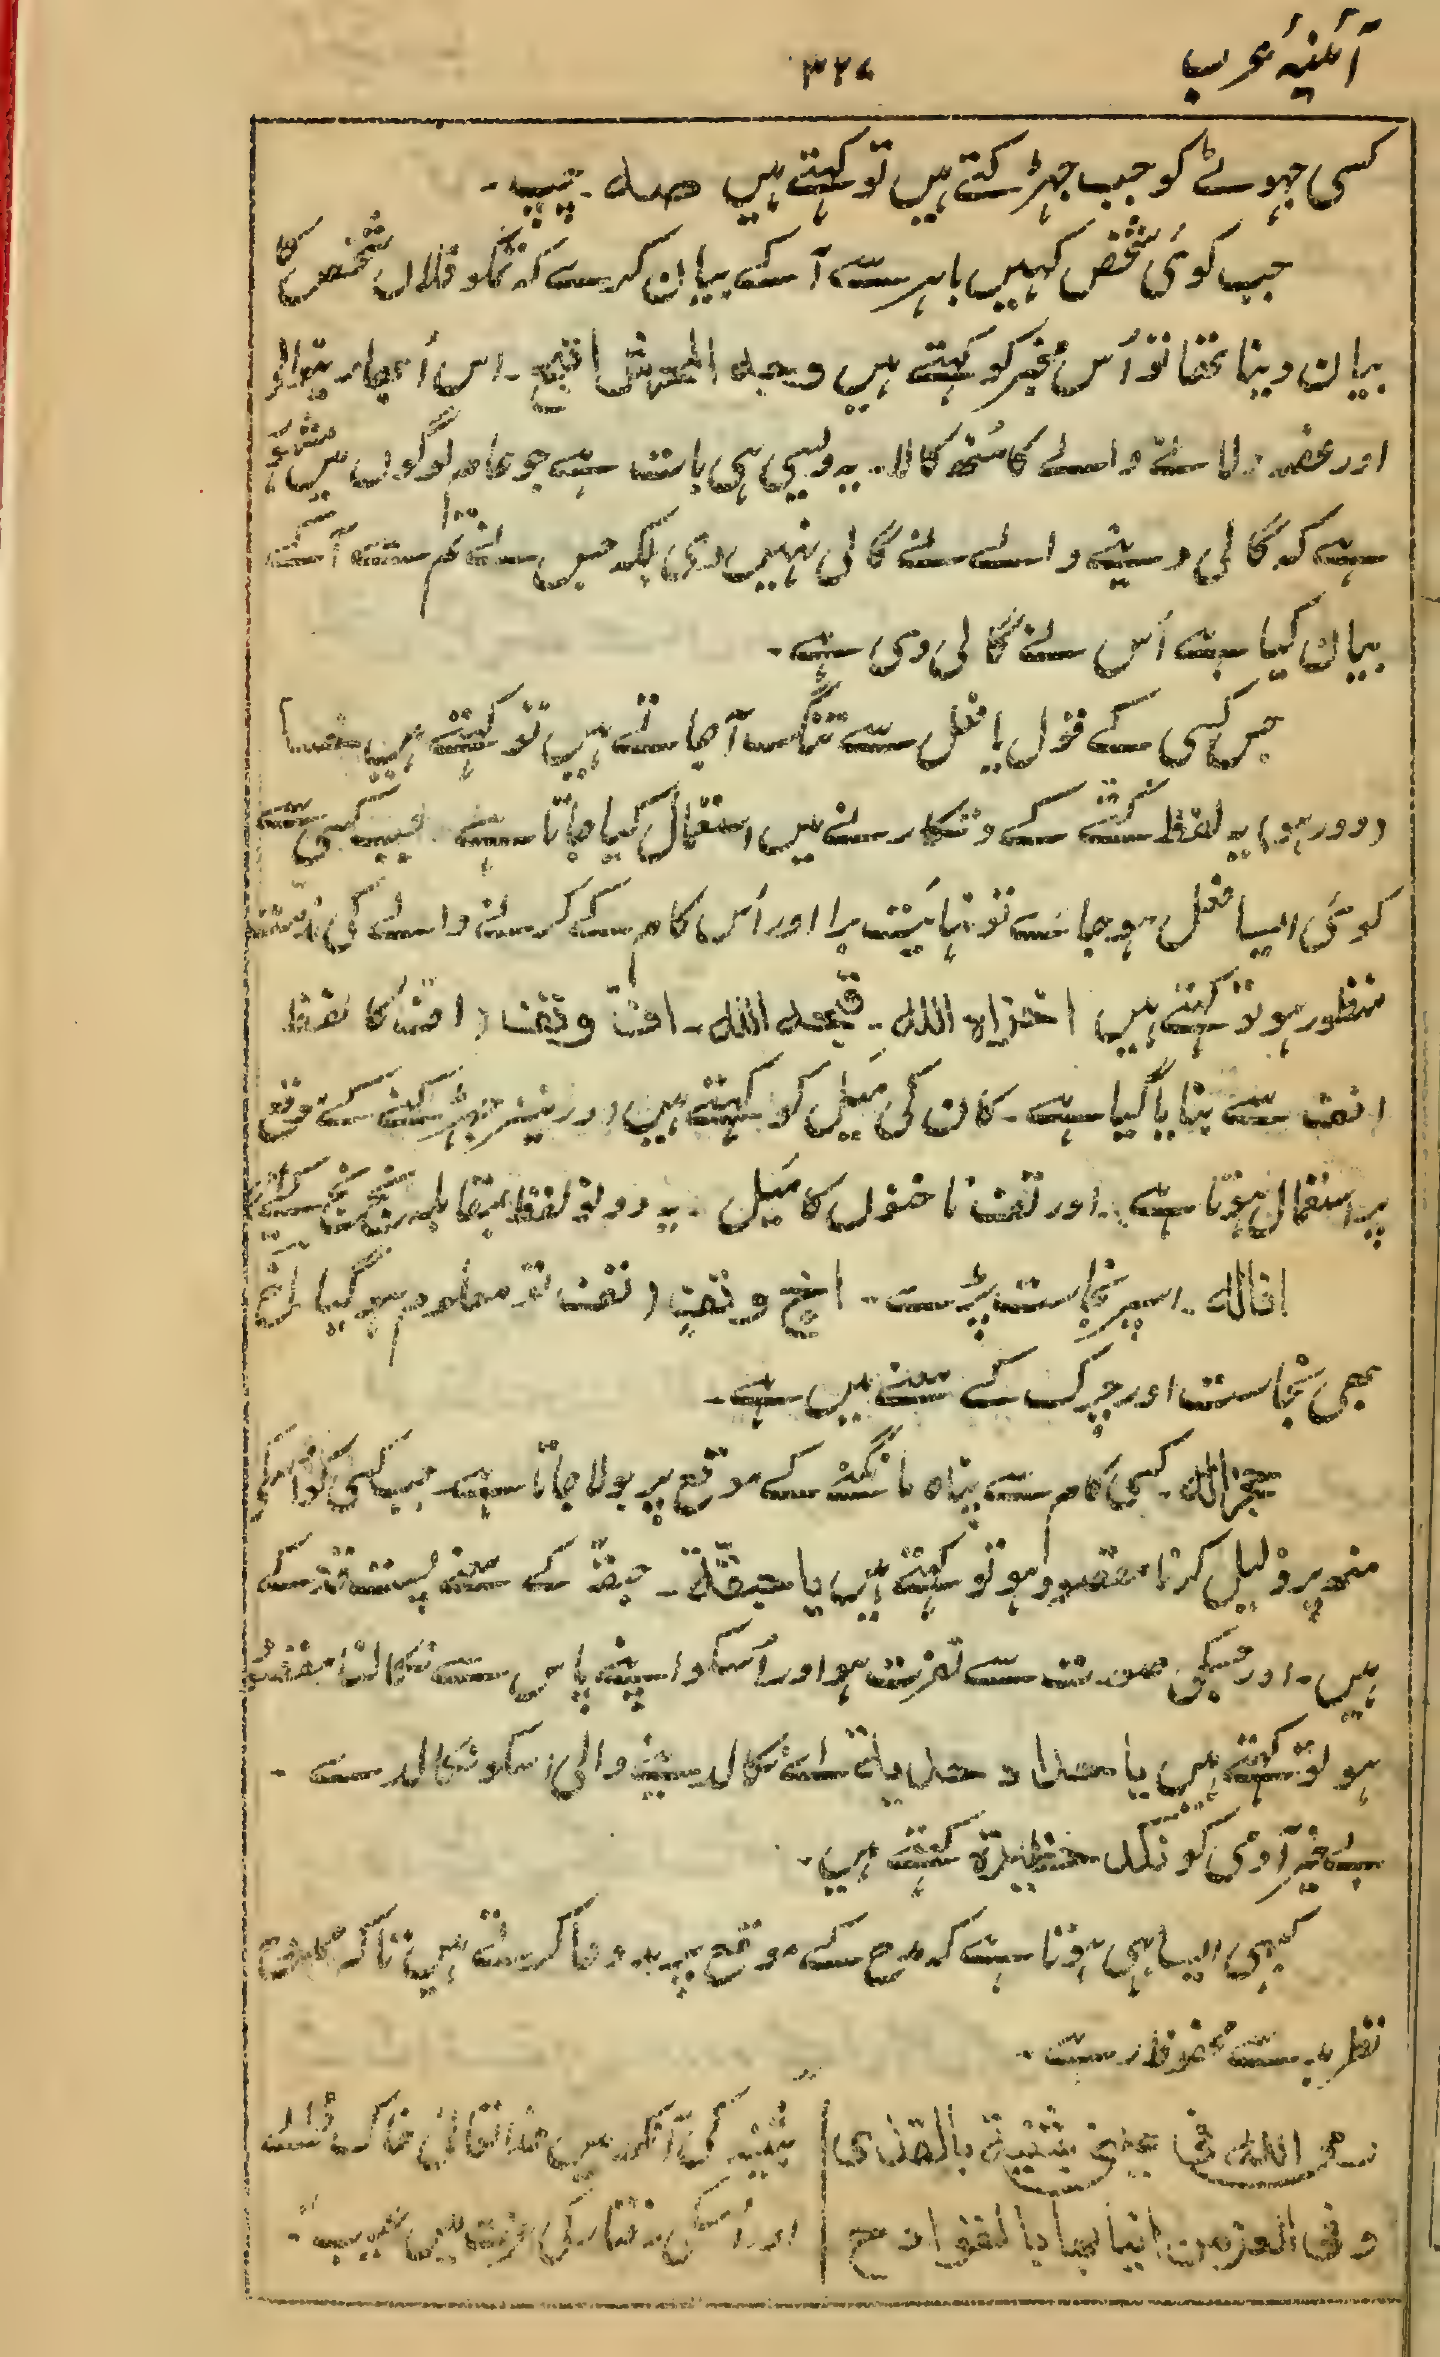 آئینۂ عرب
۳۲۷
کسی جھوٹے کو جب جھڑکتے ہیں تو کہتے ہیں صہ ۔ چپ۔
جب کوئی شخص کہیں باہر سے آ کے بیان کرے کہ تمکو فلاں شخص کا
بیان دیتا تھا تو اُس مخبر کو کہتے ہیں وجہ المحرش اقبح ۔ اس اُبھارنیوالے
اور غصہ دلانے والے کا منھ کالا۔ یہ ویسی ہی بات ہے جو عام لوگوں میں مشہور
ہے کہ گالی دینے والے نے گالی نہیں دی بلکہ جس نے تم سے آکے
بیان کیا ہے اُس نے گالی دی ہے۔
جس کسی کے قول یا فعل سے تنگ آجاتے ہیں تو کہتے ہیں
(دور ہو) یہ لفظ کُتّے کے دتکارنے میں استعمال کیا جاتا ہے ۔ جب کسی سے
کوئی ایسا فعل ہو جائے تو نہایت برا اور اُس کام کے کرنے والے کی
منظور ہو تو کہتے ہیں اخزاہ اللہ ۔ قبحہ اللہ ۔ افّ وتفّ (افّ کا لفظ
افف سے بنایا گیا ہے ۔ کان کی مَیل کو کہتے ہیں اور نیز جھڑکنے کے موقع
پر استعمال ہوتا ہے ۔ اور تفّ ناخنوں کا مَیل ۔ یہ دونو لفظ بمقابلہ
افالہ ۔ اسپر نجاست پڑے ۔ اخ و تف (تف تو معلوم ہو گیا اخ
بھی نجاست اور چرک کے معنے میں ہے۔
حجر اللہ ۔ کسی کام سے پناہ مانگنے کے موقع پر بولا جاتا ہے ۔ جب کسی کو اُسکی
منھ پر ذلیل کرنا مقصود ہو تو کہتے ہیں یا حبقّۃ ۔ حبقّہ کے معنے پست قد کے
ہیں ۔ اور جسکی صورت سے نفرت ہو اور اُسکو اپنے پاس سے نکالنا مقصود
ہو تو کہتے ہیں یا حداد حدیہ اے نکالدینے والی اسکو نکالدے ۔
بے خیر آدمی کو نکد حظیرۃ کہتے ہیں۔
کبھی ایسا بھی ہوتا ہے کہ مدح کے موقع پر بد دعا کرتے ہیں تاکہ ممدوح
نظر بد سے محفوظ رہے ۔
رمی اللہ فی عینی بثینۃ بالقذی | بثینہ کی آنکھ میں خدا تعالیٰ خاک ڈالے
وفی الغر من انیابھا بالقوادح |